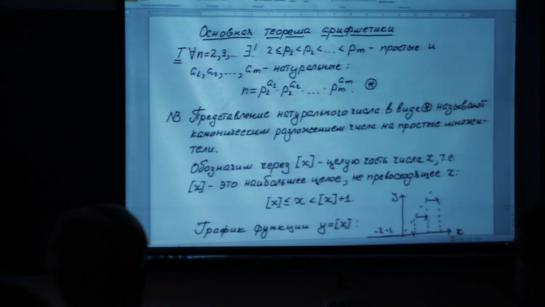 Основная теорема арифметики
Т ∀n=2,3,... ∃! 2≤p₁<p₂<...<pₘ - простые и
a₁,a₂,...,aₘ - натуральные:
n=p₁^a₁ p₂^a₂ · ... · pₘ^aₘ. ⊛
NB Представление натурального числа в виде ⊛ называют
каноническим разложением числа на простые множи-
тели.
Обозначим через [x] - целую часть числа x, т.е.
[x] - это наибольшее целое, не превосходящее x:
[x] ≤ x < [x]+1.
График функции y=[x]:
y
x